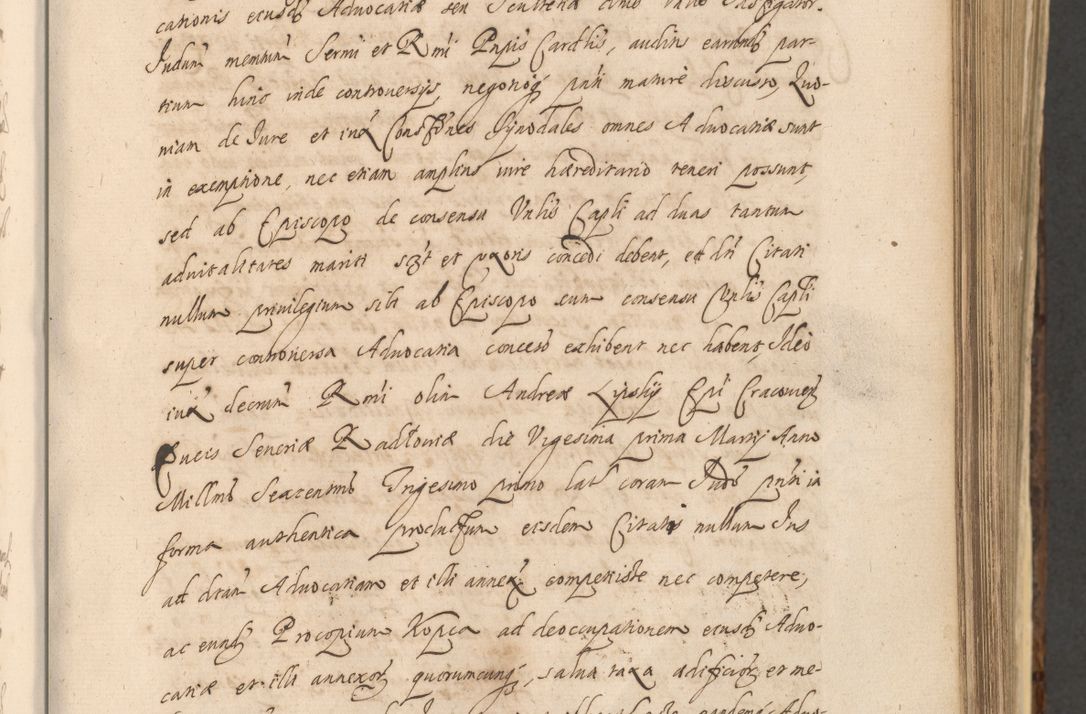 cationis eiusdẽ Advocatiæ seu Scultetiæ
Iudiũ memtum Sermi et Rmi Pnpis Cardlis, auditis earundẽ par-
tium hinc inde controversijs, negotioq̃ pnti maturè discusso, Quo-
niam de Iure et iux̃ Constõnes Synodales omnes Advocatiæ sunt
in exemptione, nec etiam amplius iure hæreditario teneri possunt,
sed ab Episcopo de consensu Vnlis Capli ad duas tantum
advitalitates mariti sczt et uxoris concedi debent, et dti Citati
nullum privilegium sibi ab Episcopo cum consensu Vnlis Capli
super controversa Advocatia concesso exhibent nec habent, Ideo
iux̃ decretũ Rmi olim Andreæ Lipskij Epi Cracoviẽ
Ducis Severiæ Radłoviæ die Vigesima prima Martij Anno
Millmo Sexcentmo Trigesimo primo lat coram Iudõ pnti in
forma authentica productum eisdem Citatis nullum Ius
ad dtam Advocatiam et illi annex̃ competijsse nec competere,
ac eundẽ Procopium Kopca ad deoccupationem eiusdẽ Advo-
catiæ et illi annexorũ quorumcunq̃, salva taxa ædificiorũ et me-